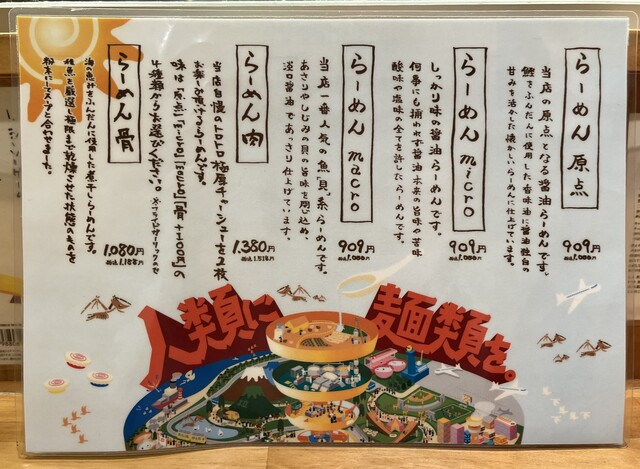 らーめん 原点
当店の原点となる醤油らーめんです。
鰹をふんだんに使用した香味油に醤油独自の
甘みを活かした懐かしいらーめんに仕上げています。
909円
税込1,000円
らーめん micro
しっかり味の醤油らーめんです。
何事にも捕われず醤油本来の旨味や苦味
酸味や塩味の全てを許したらーめんです。
909円
税込1,000円
らーめん macro
当店一番人気の魚貝系らーめんです。
あさりやしじみの貝の旨味を閉じ込め、
淡口醤油であっさり仕上げています。
909円
税込1,000円
らーめん 肉
当店自慢のトロトロ極厚チャーシューを2枚
お楽しみ頂けるらーめんです。
味は「原点」「micro」「macro」「骨+100円」の
4種類からお選びください。
1,380円
税込1,518円
らーめん 骨
海の恵みをふんだんに使用した煮干しらーめんです。
種魚を厳選し極限まで乾燥させた状態のものを
粉末にしてスープと合わせました。
1,080円
税込1,188円
人類に
麺類を。